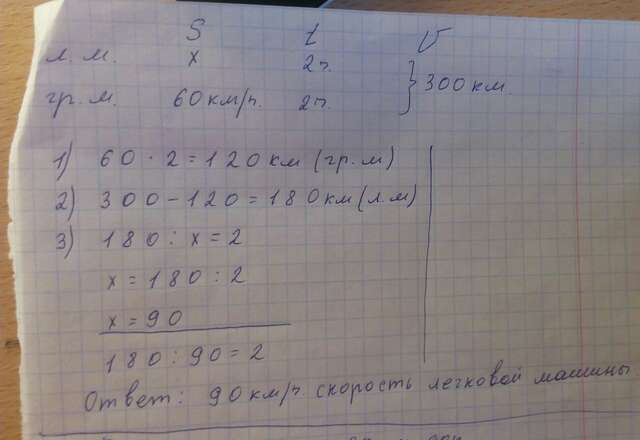 S t V
л.м. x 2ч. } 300 км.
гр.м. 60 км/ч. 2ч.
1) 60 · 2 = 120 км (гр.м)
2) 300 - 120 = 180 км (л.м)
3) 180 : x = 2
x = 180 : 2
x = 90
180 : 90 = 2
Ответ: 90 км/ч. скорость легковой машины